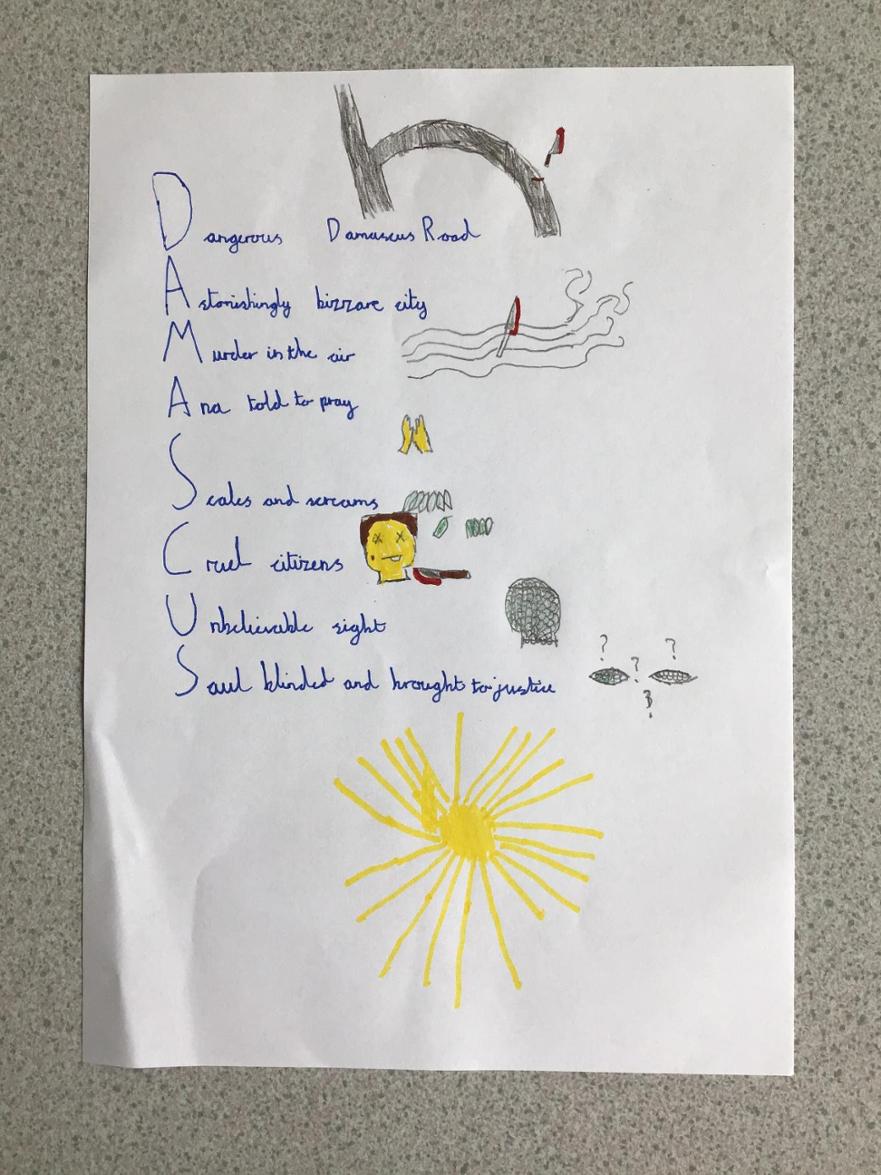 Dangerous Damascus Road
Astonishingly bizzare city
Murder in the air
Ana told to pray
Scales and screams
Cruel citizens
Unbelievable sight
Saul blinded and brought to justice
? ? ?
?